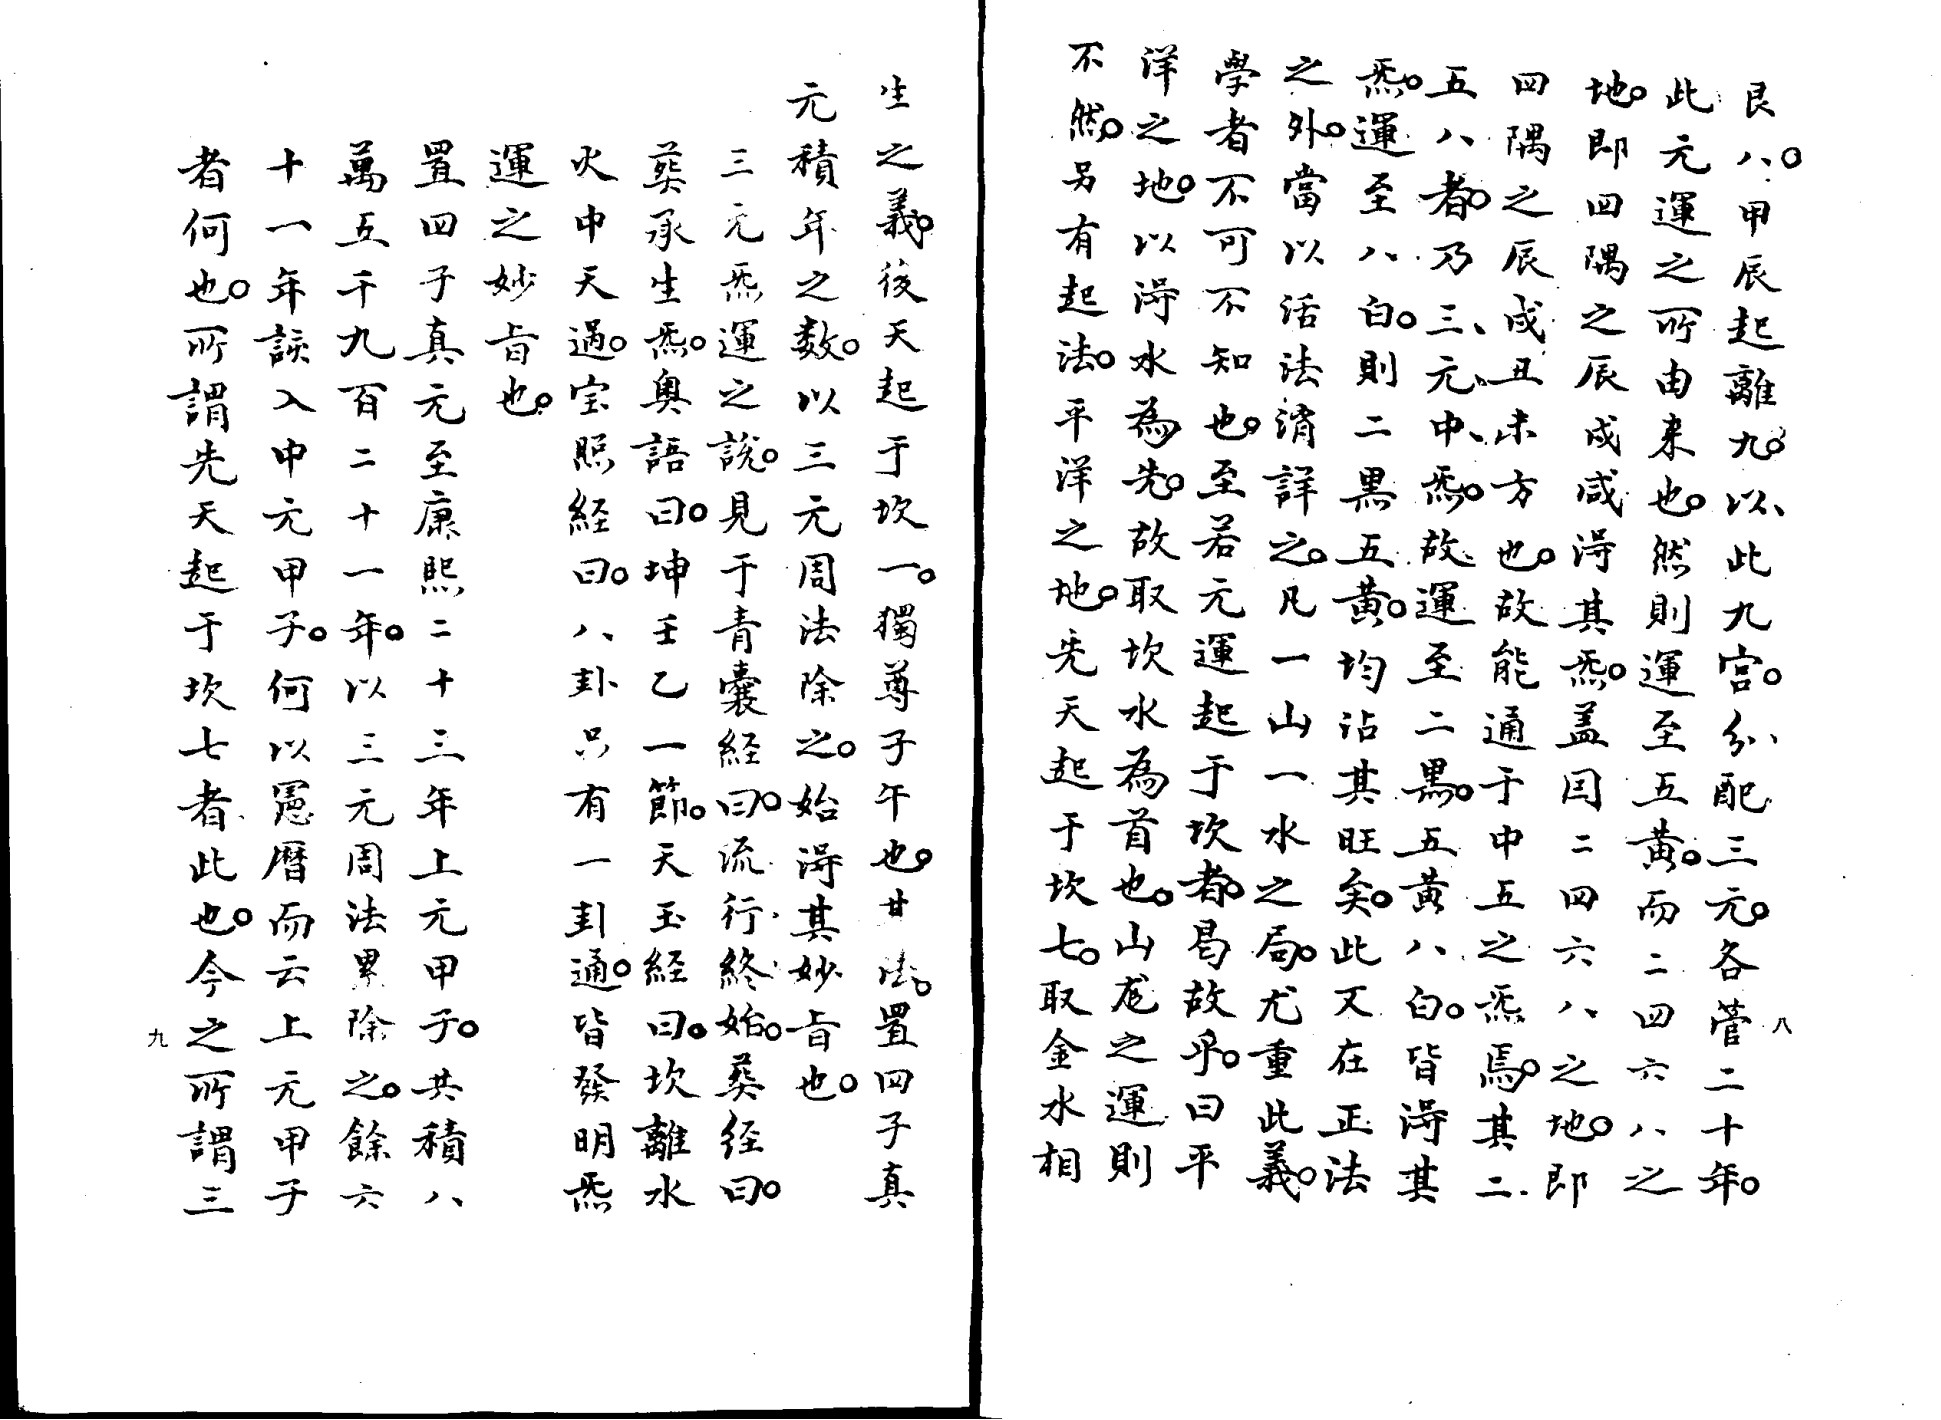 艮八。甲辰起離九。以此九宮。分配三元。各管二十年。
此元運之所由来也。然則運至五黃。而二四六八之
地。即四隅之辰戌咸淂其炁。盖因二四六八之地。即
四隅之辰戌丑未方也。故能通于中五之炁焉。其二
五八者。乃三元中炁。故運至二黒。五黃八白。皆淂其
炁。運至八白。則二黒五黃。均沾其旺矣。此又在正法
之外。當以活法消詳之。凡一山一水之局。尤重此義。
學者不可不知也。至若元運起于坎者。曷故乎。曰平
洋之地。以淂水為先。故取坎水為首也。山龙之運則
不然。另有起法。平洋之地。先天起于坎七。取金水相
八
生之義。後天起于坎一。獨尊子午也。廿法。置四子真
元積年之数。以三元周法除之。始淂其妙旨也。
三元炁運之說。見于青囊経曰。流行終始。葬経曰。
葬承生炁。奧語曰。坤壬乙一節。天玉経曰。坎離水
火中天過。宝照経曰。八卦只有一卦通。皆發明炁
運之妙旨也。
置四子真元至康熙二十三年上元甲子。共積八
萬五千九百二十一年。以三元周法累除之。餘六
十一年該入中元甲子。何以憲曆而云上元甲子
者何也。所謂先天起于坎七者此也。今之所謂三
九